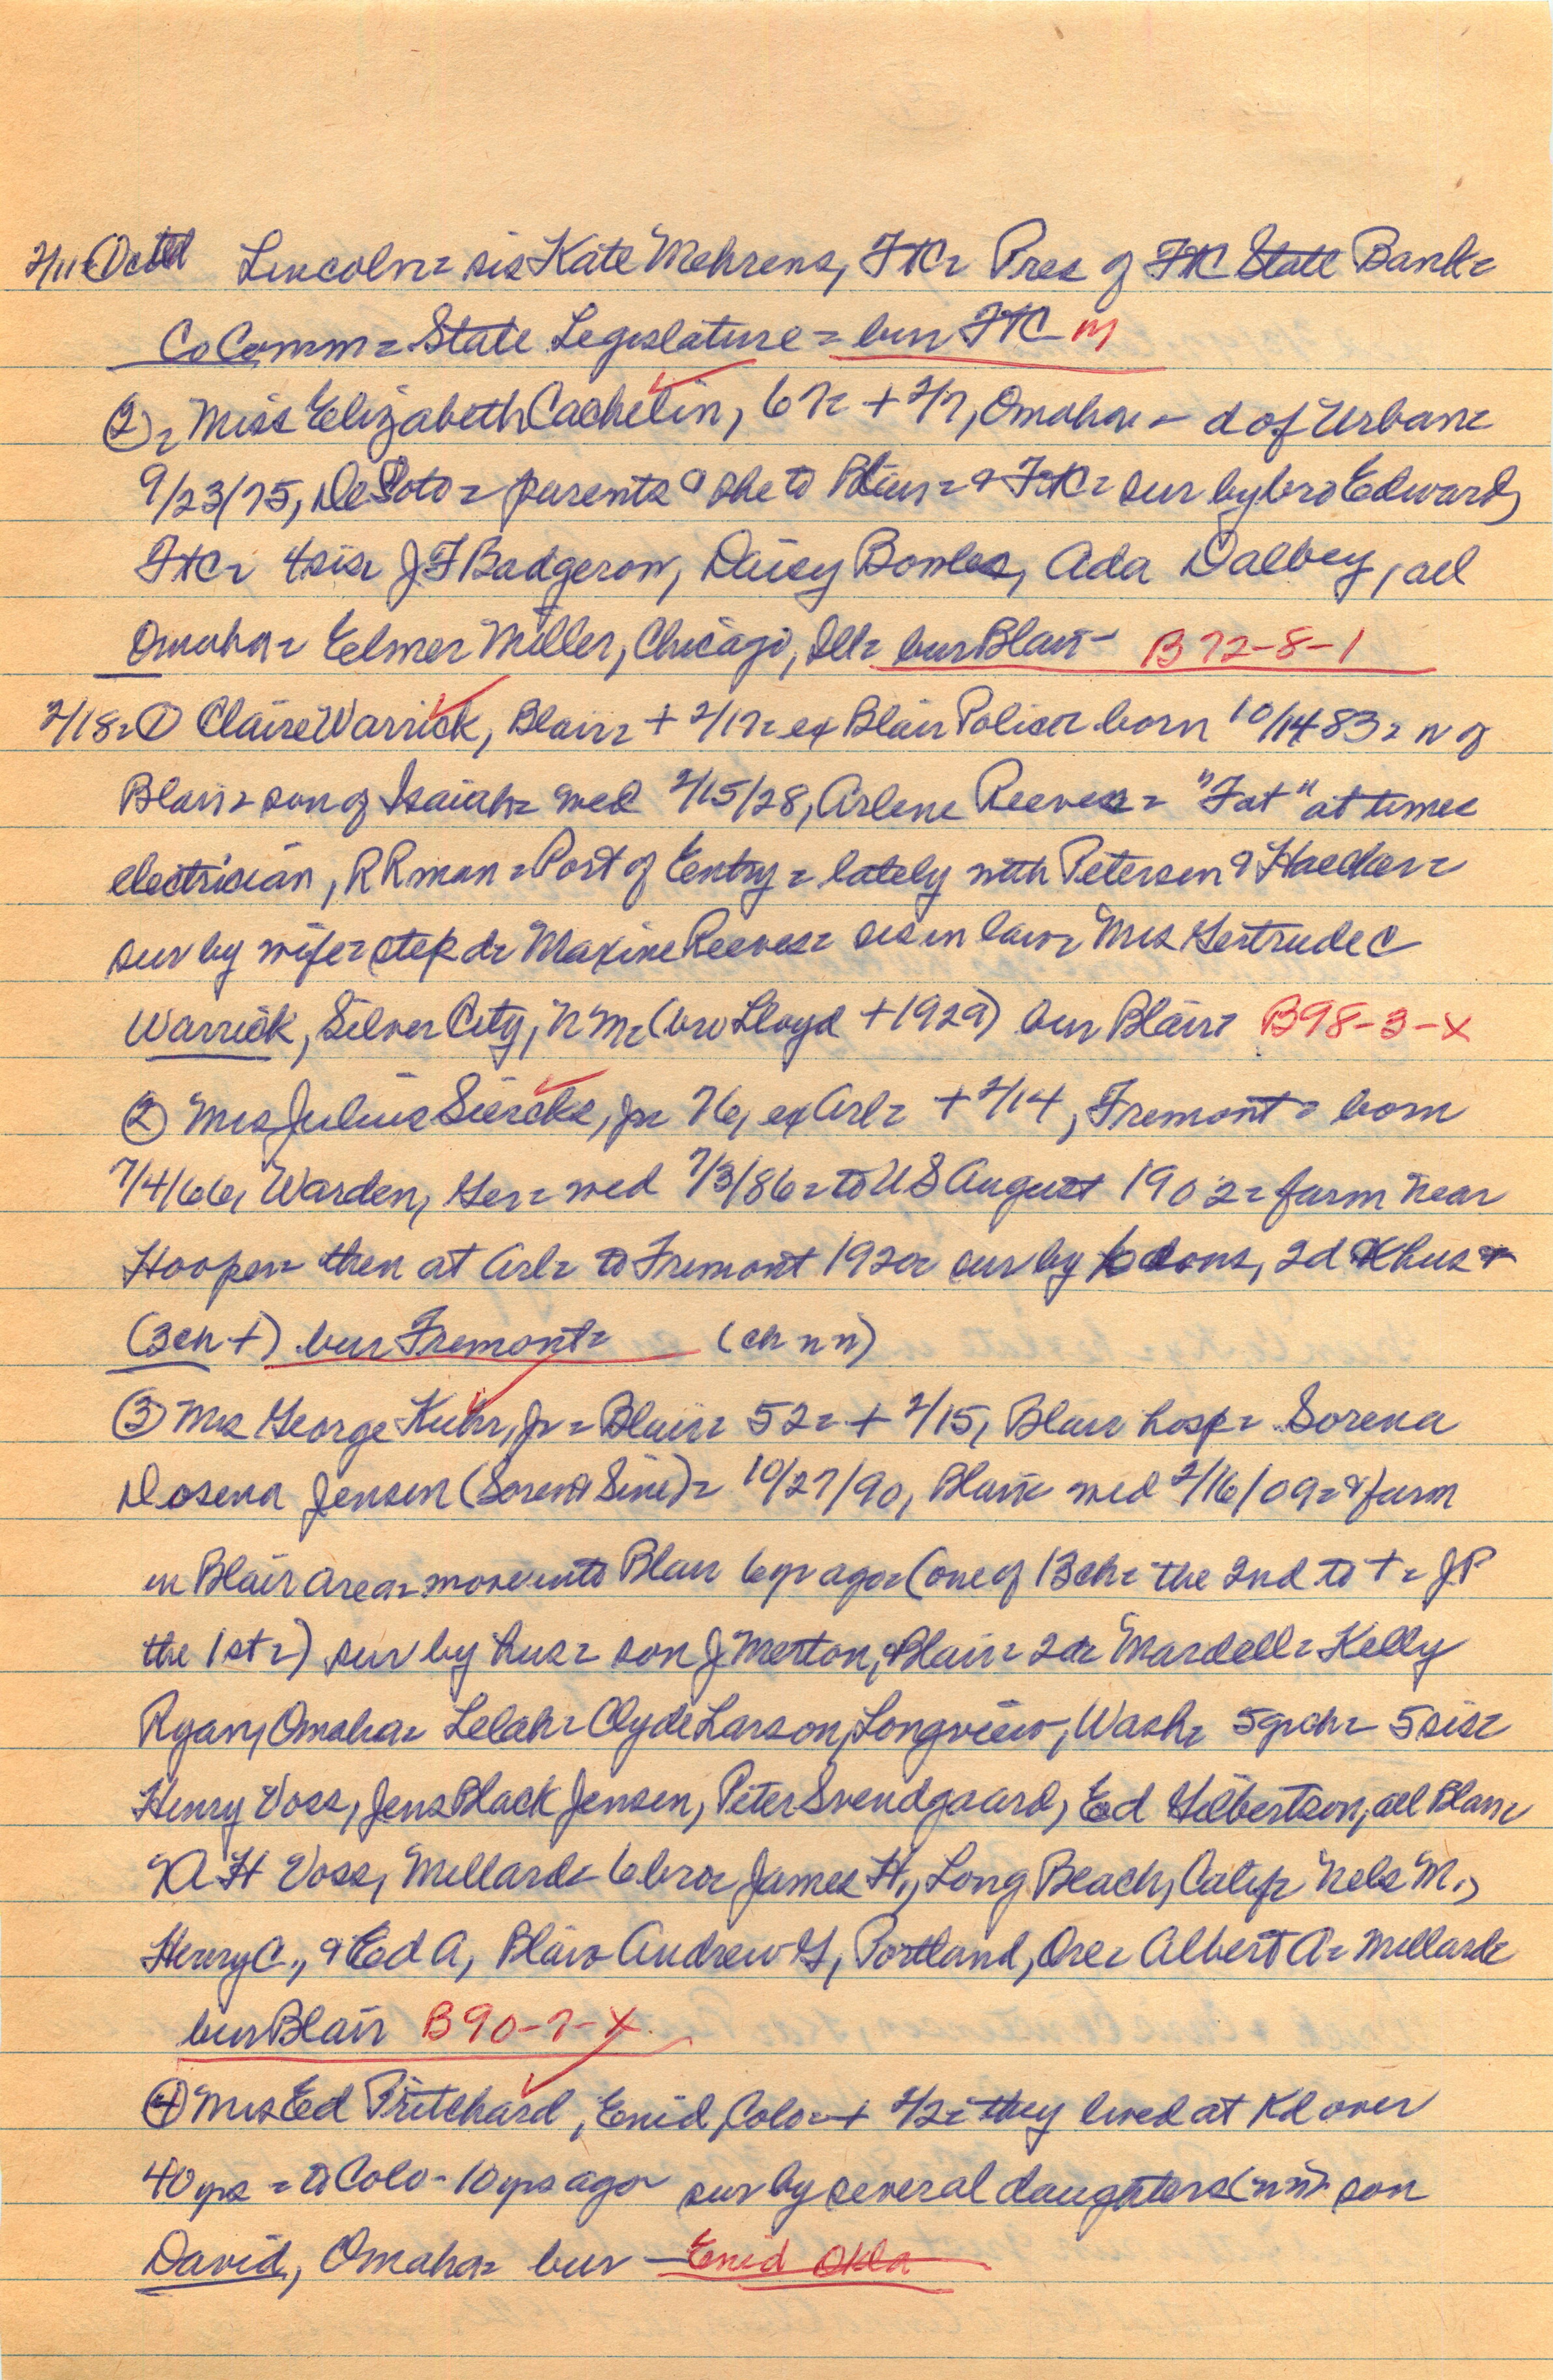 2/11 ① ctd Lincoln= sis Kate Mehrens, FtC= Pres of FtC State Bank=
CoComm= State Legislature= bur FtC m
②= Miss Elizabeth Cachelin, 67= + 2/7, Omaha - d of Urban=
9/23/75, DeSoto= parents & she to Blair= & FtC= sur by bro Edward,
FtC= 4 sis= J F Badgerow, Daisy Bowles, Ada Dalbey, all
Omaha= Elmer Miller, Chicago, Ill= bur Blair- B72-8-1
2/18= ① Claire Warrick, Blair= + 2/17= ex Blair Police= born 10/14 83= n of
Blair= son of Isaiah= wed 2/15/28, Arlene Reeves= "Fat" at times
electrician, RRman= Port of Entry= lately with Petersen & Haecker=
sur by wife= step d= Maxine Reeves= sis in law= Mrs Gertrude C
Warrick, Silver City, NM= (bro Lloyd +1929) bur Blair= B98-3-X
② Mrs Julius Siercks, Jr= 76, ex Arl= + 2/14, Fremont= born
7/4/66, Warden, Ger= wed 7/3/86= to US August 1902= farm near
Hooper= then at Arl= to Fremont 1920= sur by 6 sons, 2d hus +
(3 ch +) bur Fremont= (ch n n)
③ Mrs George Kuhr, Jr= Blair= 52= + 2/15, Blair hosp= Sorena
Dosena Jensen (Soren & Sine)= 10/27/90, Blair= wed 2/16/09= & farm
in Blair area= move into Blair 6 yr ago= (one of 13 ch= the 2nd to += JP
the 1st=) sur by hus= son J Merton, Blair= 2d= Mardell= Kelly
Ryan, Omaha= Lelah= Clyde Larson, Longview, Wash= 5 grch= 5 sis=
Henry Voss, Jens Black Jensen, Peter Svendgaard, Ed Gilbertson, all Blair=
A H Voss, Millard= 6 bro= James H., Long Beach, Calif= Nels M.,
Henry C., & Ed A, Blair= Andrew G, Portland, Ore= Albert A= Millard=
bur Blair B90-7-X
④ Mrs Ed Pritchard, Enid, Colo= + 2/2= they lived at Kd over
40 yrs = to Colo- 10 yrs ago= sur by several daughters (nn)= son
David, Omaha= bur - Enid Okla